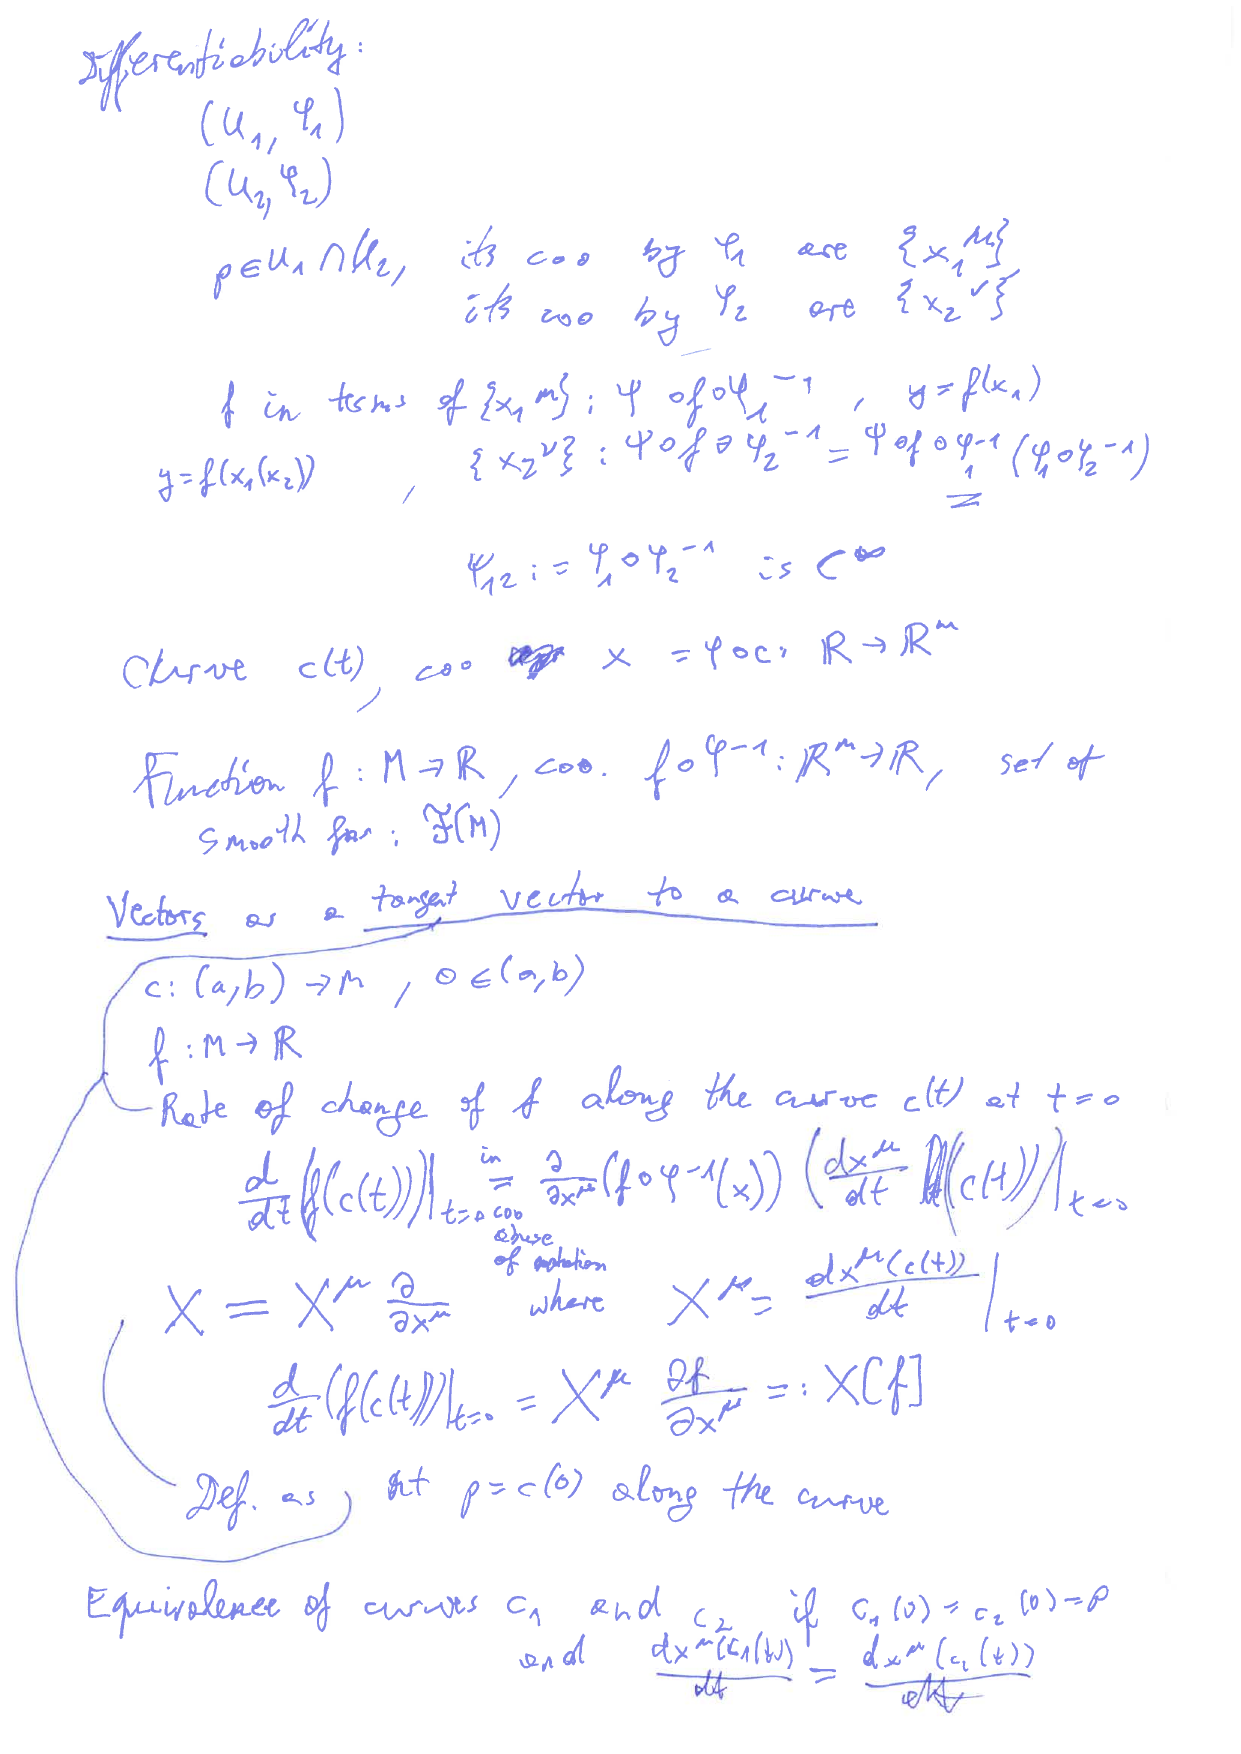 Differentiability:
(U₁, φ₁)
(U₂, φ₂)
p∈U₁∩U₂, its coo by φ₁ are {x₁^μ}
its coo by φ₂ are {x₂^ν}
f in terms of {x₁^μ}: ψ∘f∘φ₁⁻¹, y=f(x₁)
y=f(x₁(x₂)) , {x₂^ν}: ψ∘f∘φ₂⁻¹ = ψ∘f∘φ₁⁻¹(φ₁∘φ₂⁻¹)
ψ₁₂ := φ₁∘φ₂⁻¹ is C^∞
Curve c(t), coo x = φ∘c: ℝ→ℝ^m
Function f: M→ℝ, coo. f∘φ⁻¹: ℝ^m→ℝ, set of
smooth : 𝔉(M)
Vectors as a tangent vector to a curve
c: (a,b)→M, 0∈(a,b)
f: M→ℝ
Rate of change of f along the curve c(t) at t=0
d/dt (f(c(t)))|_{t=0} = in coo ∂/∂x^μ (f∘φ⁻¹(x)) (dx^μ/dt (c(t)))|_{t=0}
abuse
of notation
X = X^μ ∂/∂x^μ where X^μ = dx^μ(c(t))/dt |_{t=0}
d/dt (f(c(t)))|_{t=0} = X^μ ∂f/∂x^μ =: X[f]
Def. as , at p=c(0) along the curve
Equivalence of curves c₁ and c₂ if c₁(0)=c₂(0)=p
and dx^μ(c₁(t))/dt = dx^μ(c₂(t))/dt